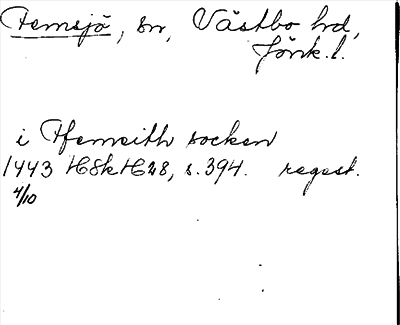 Femsjö, sn, Västbo hd,
Jönk.l.
i Ffemsith socken
1443 HSkH28, s.394. regest.
4/10